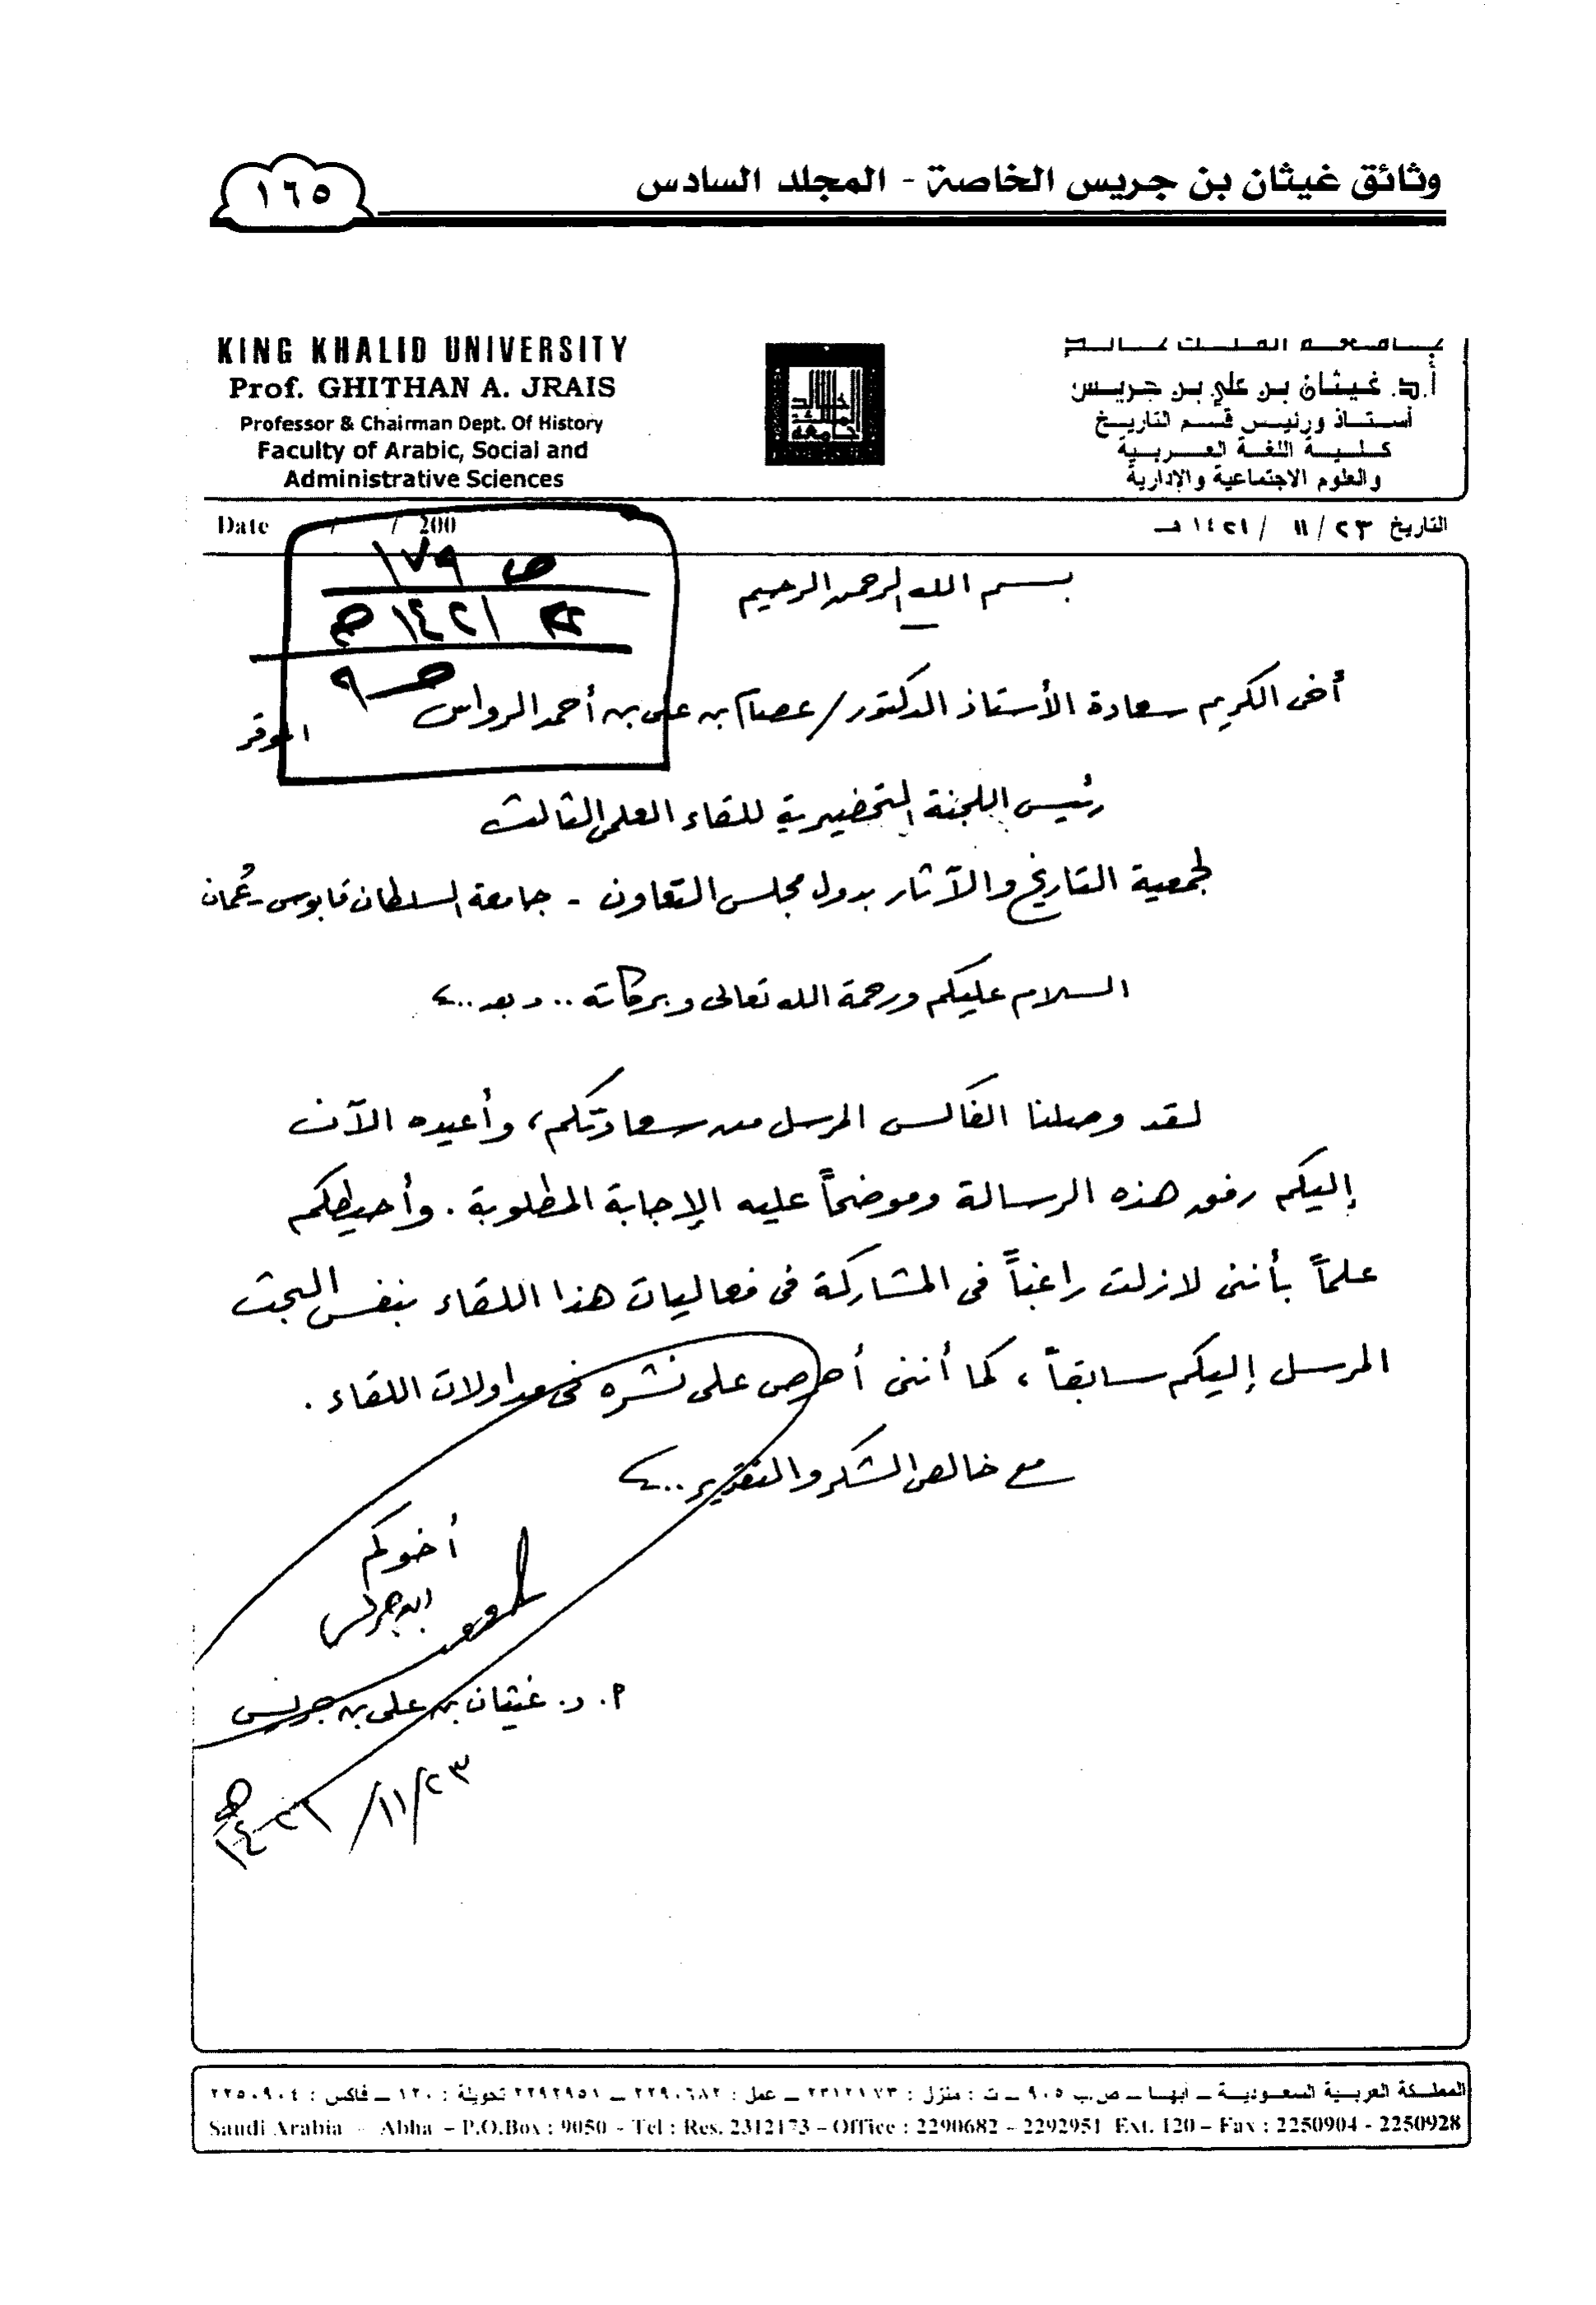 وثائق غيثان بن جريس الخاصة - المجلد السادس
١٦٥
KING KHALID UNIVERSITY
Prof. GHITHAN A. JRAIS
Professor & Chairman Dept. Of History
Faculty of Arabic, Social and
Administrative Sciences
جامعة الملك خالد
أ.د. غيثان بن علي بن جريس
أستاذ ورئيس قسم التاريخ
كلية اللغة العربية
والعلوم الاجتماعية والإدارية
التاريخ ٢٣ / ١١ / ١٤٢١ هـ
Date / / 200
ص ١٧٩
١٤٢١ هـ
بسم الله الرحمن الرحيم
أخي الكريم سعادة الأستاذ الدكتور / عصام بن علي بن أحمد الرواس الموقر
رئيس اللجنة التحضيرية للقاء العلمي الثالث
لجمعية التاريخ والآثار بدول مجلس التعاون - جامعة السلطان قابوس - عُمان
السلام عليكم ورحمة الله تعالى وبركاته .. وبعد ..
لقد وصلنا الفاكس المرسل من سعادتكم، وأعيده الآن
إليكم رفق هذه الرسالة وموضحاً عليه الإجابة المطلوبة . وأحيطكم
علماً بأنني لازلت راغباً في المشاركة في فعاليات هذا اللقاء بنفس البحث
المرسل إليكم سابقاً، كما أنني أحرص على نشره في مداولات اللقاء .
مع خالص الشكر والتقدير ..
أخوكم
ابن جريس
أ. د. غيثان بن علي بن جريس
٢٣/١١/١٤٢١ هـ
المملكة العربية السعودية ــ أبهــا ــ ص.ب ٩٠٥٠ ــ ت : منزل : ٢٣١٢١٧٣ ــ عمل : ٢٢٩٠٦٨٢ ــ ٢٢٩٢٩٥١ تحويلة : ١٢٠ ــ فاكس : ٢٢٥٠٩٠٤
Saudi Arabia - Abha - P.O.Box : 9050 - Tel : Res. 2312173 - Office : 2290682 - 2292951 Ext. 120 - Fax : 2250904 - 2250928